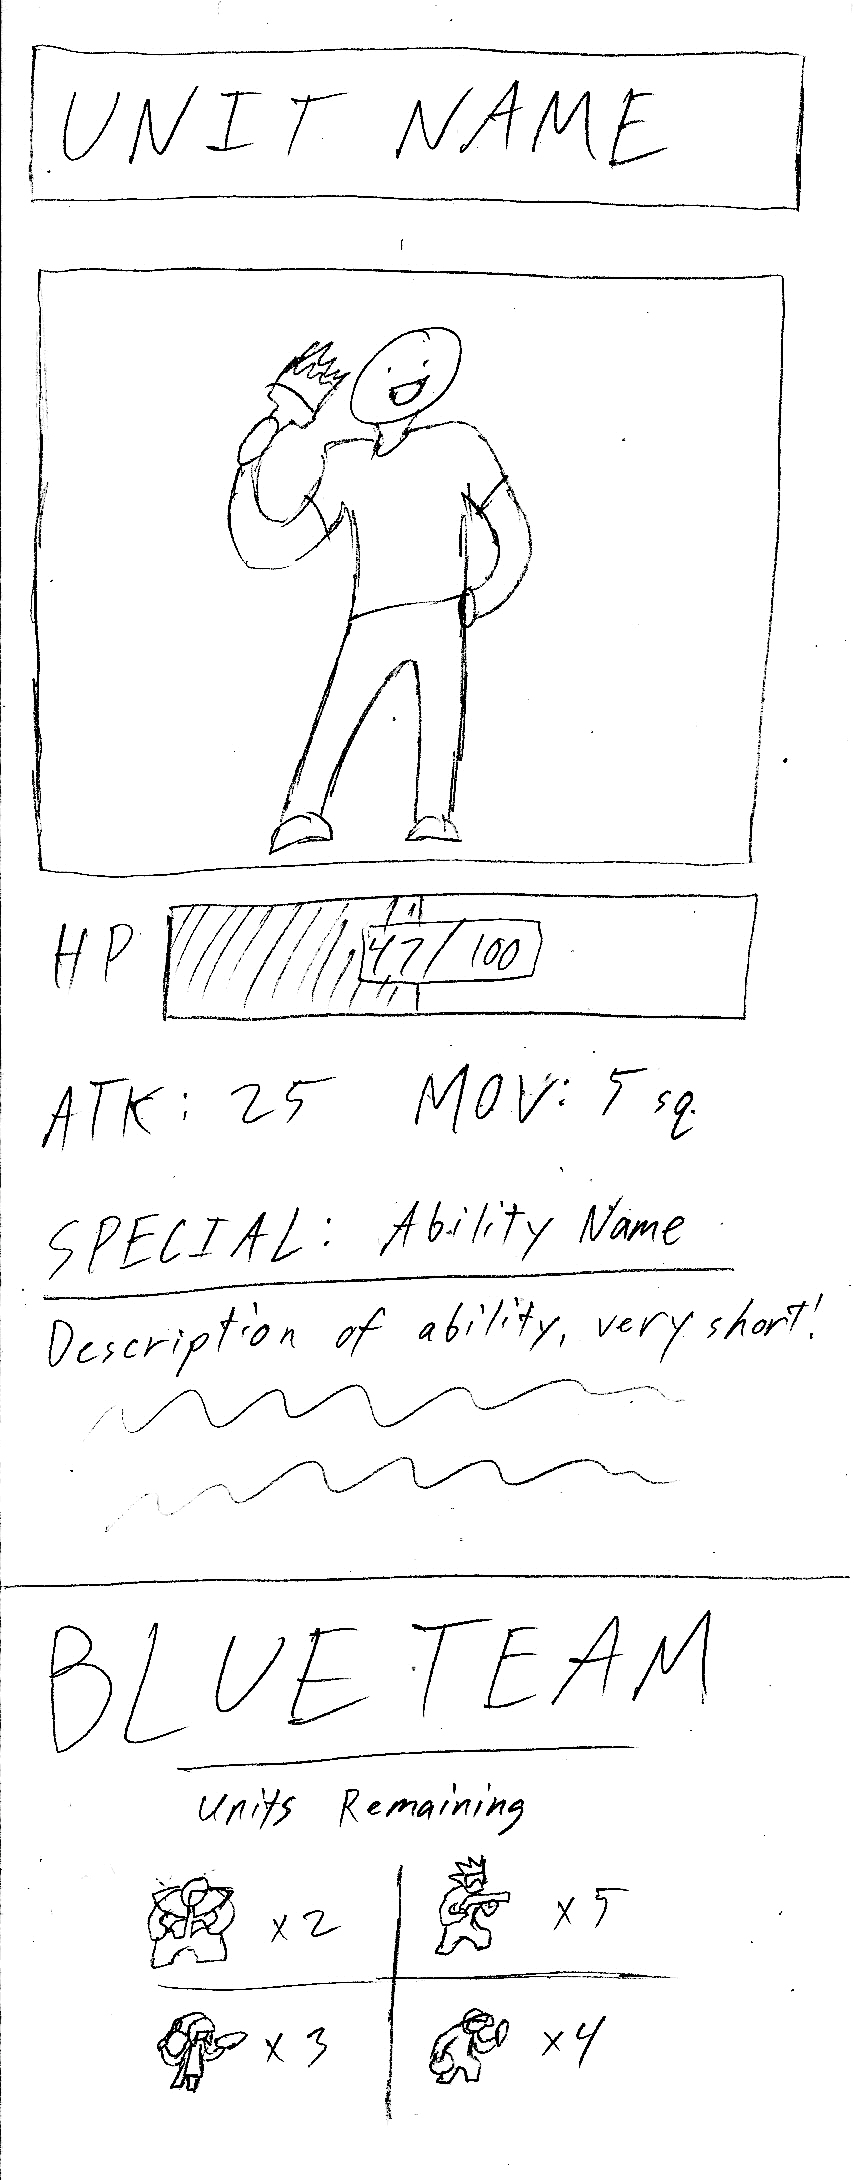 UNIT NAME
HP 47/100
ATK: 25 MOV: 5 sq.
SPECIAL: Ability Name
Description of ability, very short!
BLUE TEAM
Units Remaining
x2 x5
x3 x4